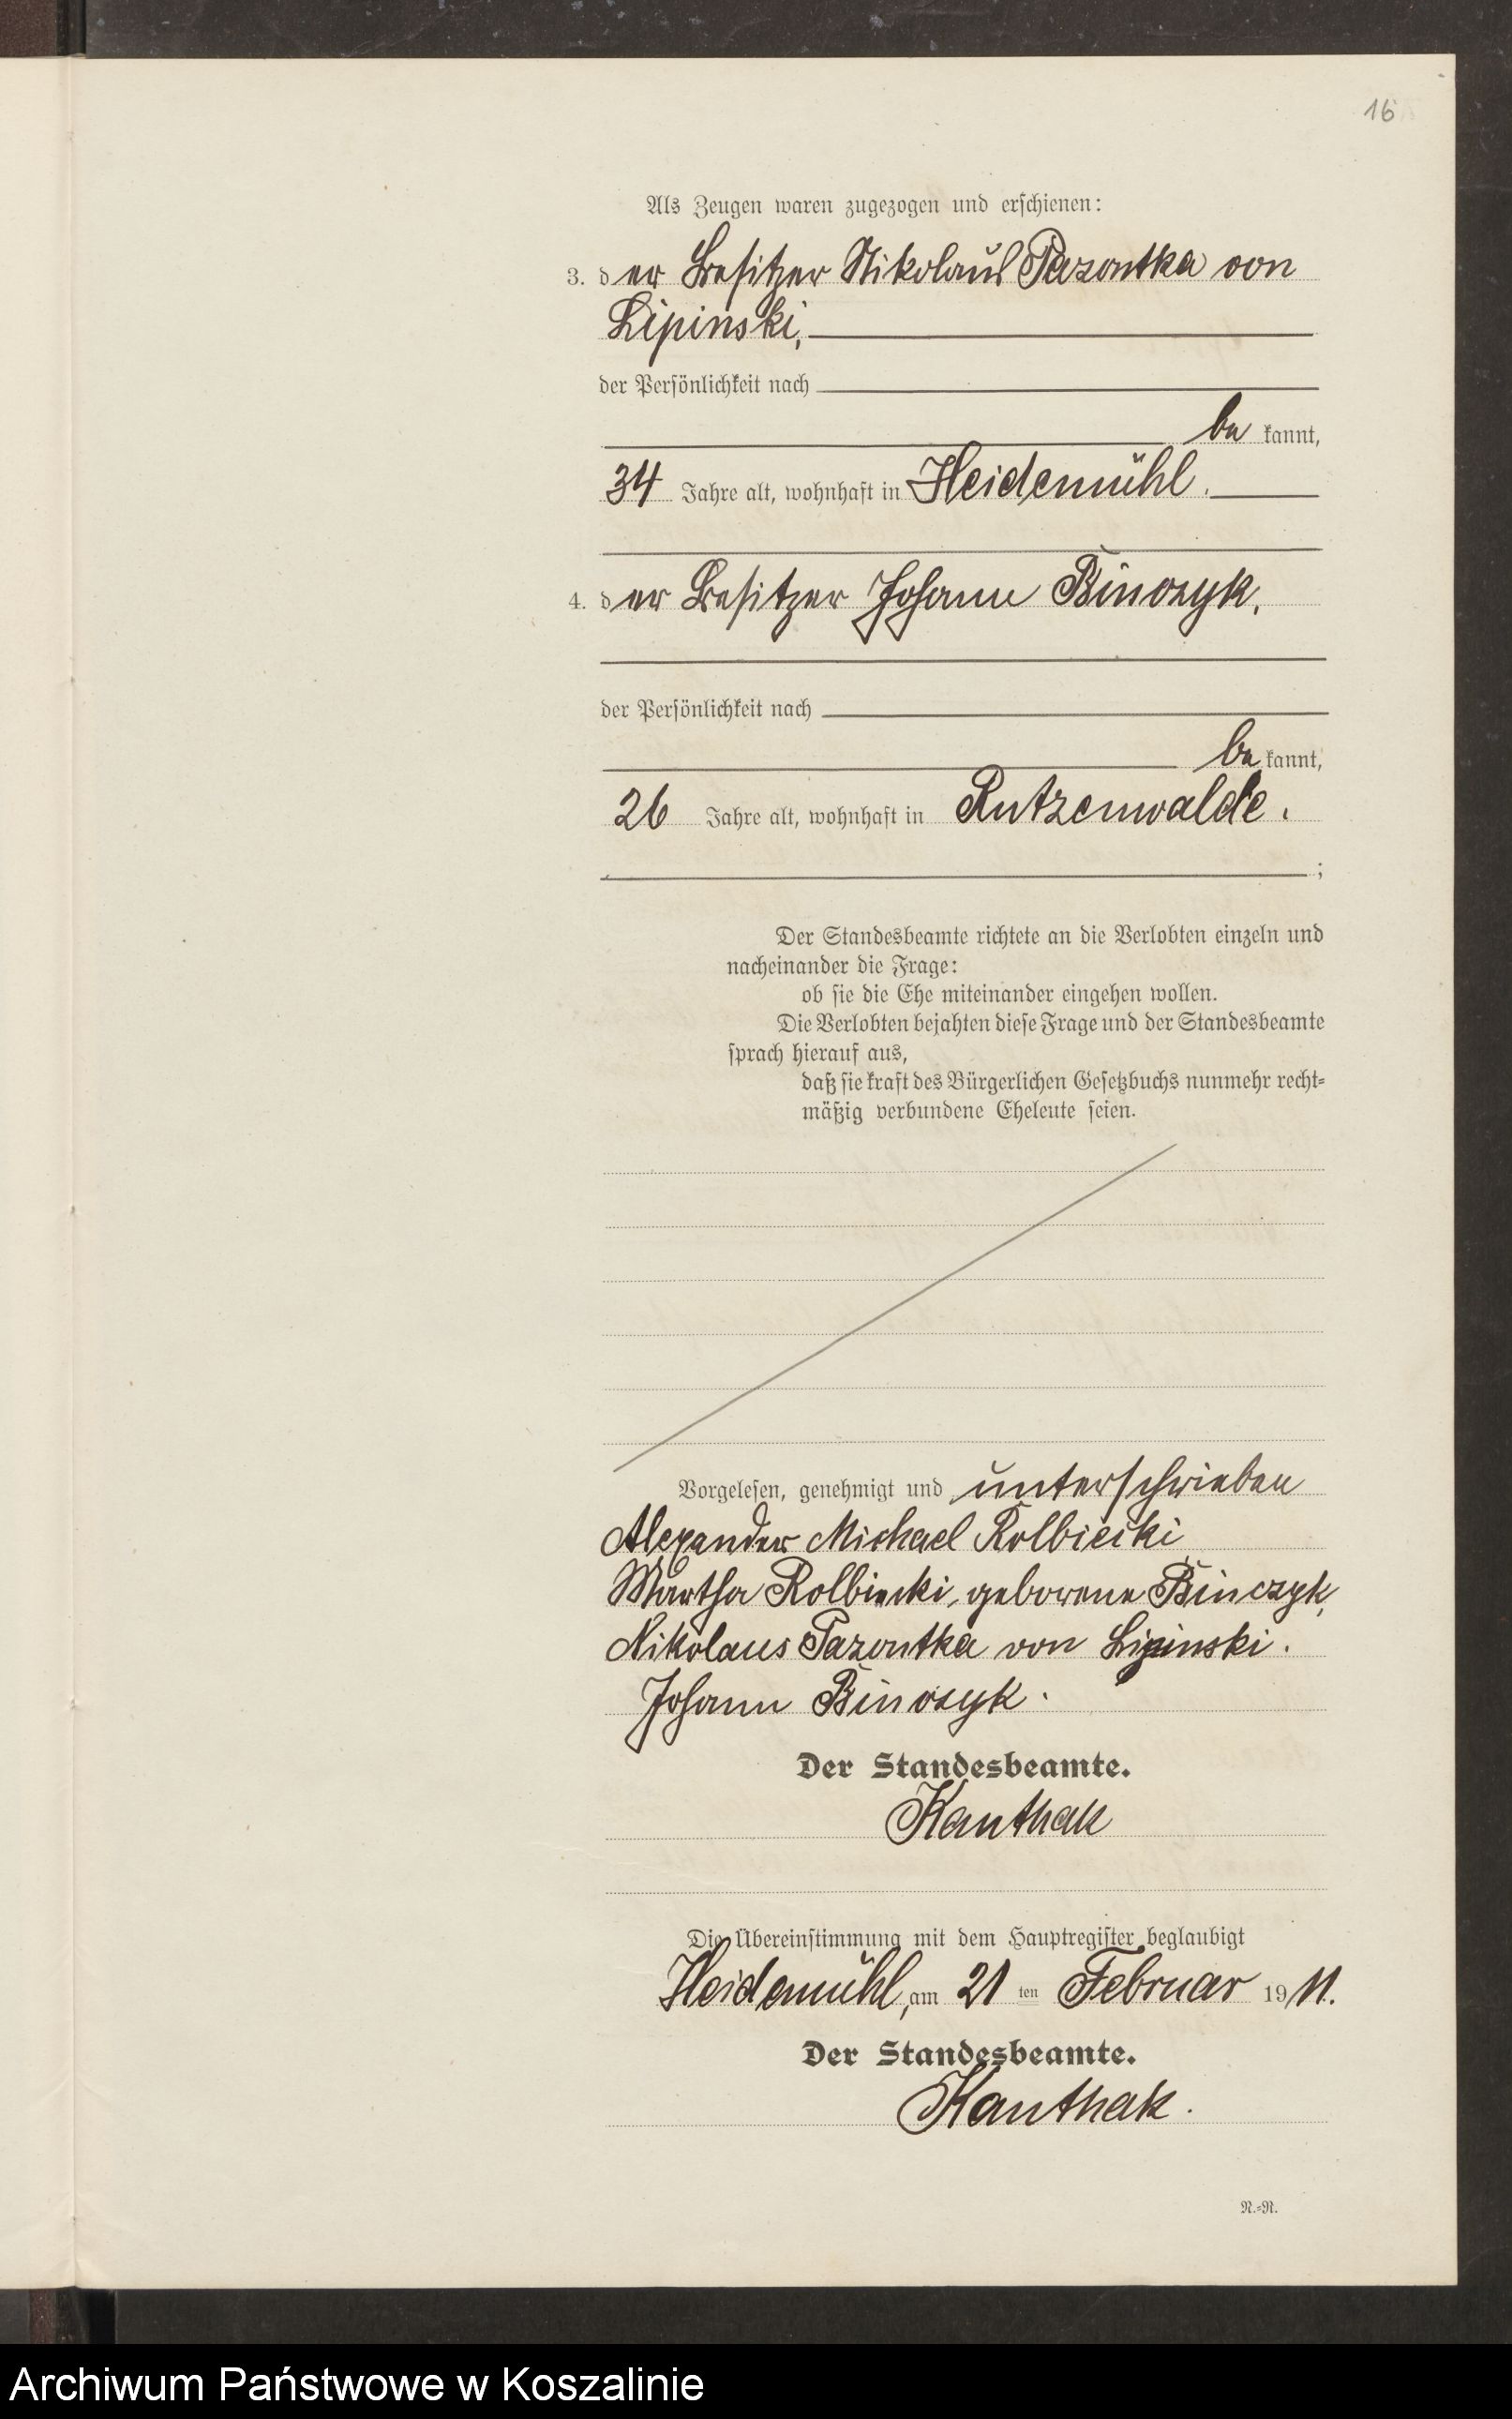 16
Als Zeugen waren zugezogen und erschienen:
3. der Besitzer Nikolaus Pazontka von
Lipinski,
der Persönlichkeit nach
be kannt,
34 Jahre alt, wohnhaft in Heidemühl.
4. der Besitzer Johann Binczyk,
der Persönlichkeit nach
be kannt,
26 Jahre alt, wohnhaft in Rutzenwalde.
;
Der Standesbeamte richtete an die Verlobten einzeln und
nacheinander die Frage:
ob sie die Ehe miteinander eingehen wollen.
Die Verlobten bejahten diese Frage und der Standesbeamte
sprach hierauf aus,
daß sie kraft des Bürgerlichen Gesetzbuchs nunmehr recht-
mäßig verbundene Eheleute seien.
Vorgelesen, genehmigt und unterschrieben
Alexander Michael Rolbiecki
Martha Rolbiecki, geborene Binczyk,
Nikolaus Pazontka von Lipinski.
Johann Binczyk.
Der Standesbeamte.
Kanthak
Die Übereinstimmung mit dem Hauptregister beglaubigt
Heidemühl, am 21 ten Februar 1911.
Der Standesbeamte.
Kanthak.
N.-R.
Archiwum Państwowe w Koszalinie